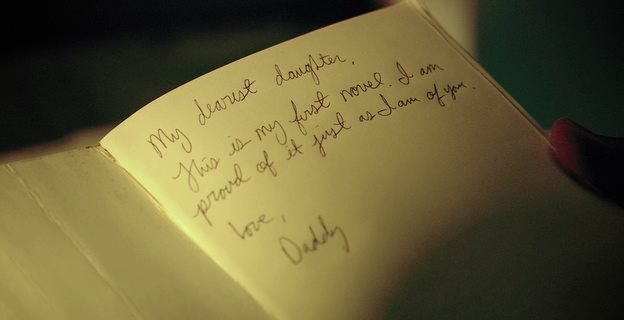 My dearest daughter,
This is my first novel. I am
proud of it just as I am of you.
Love,
Daddy